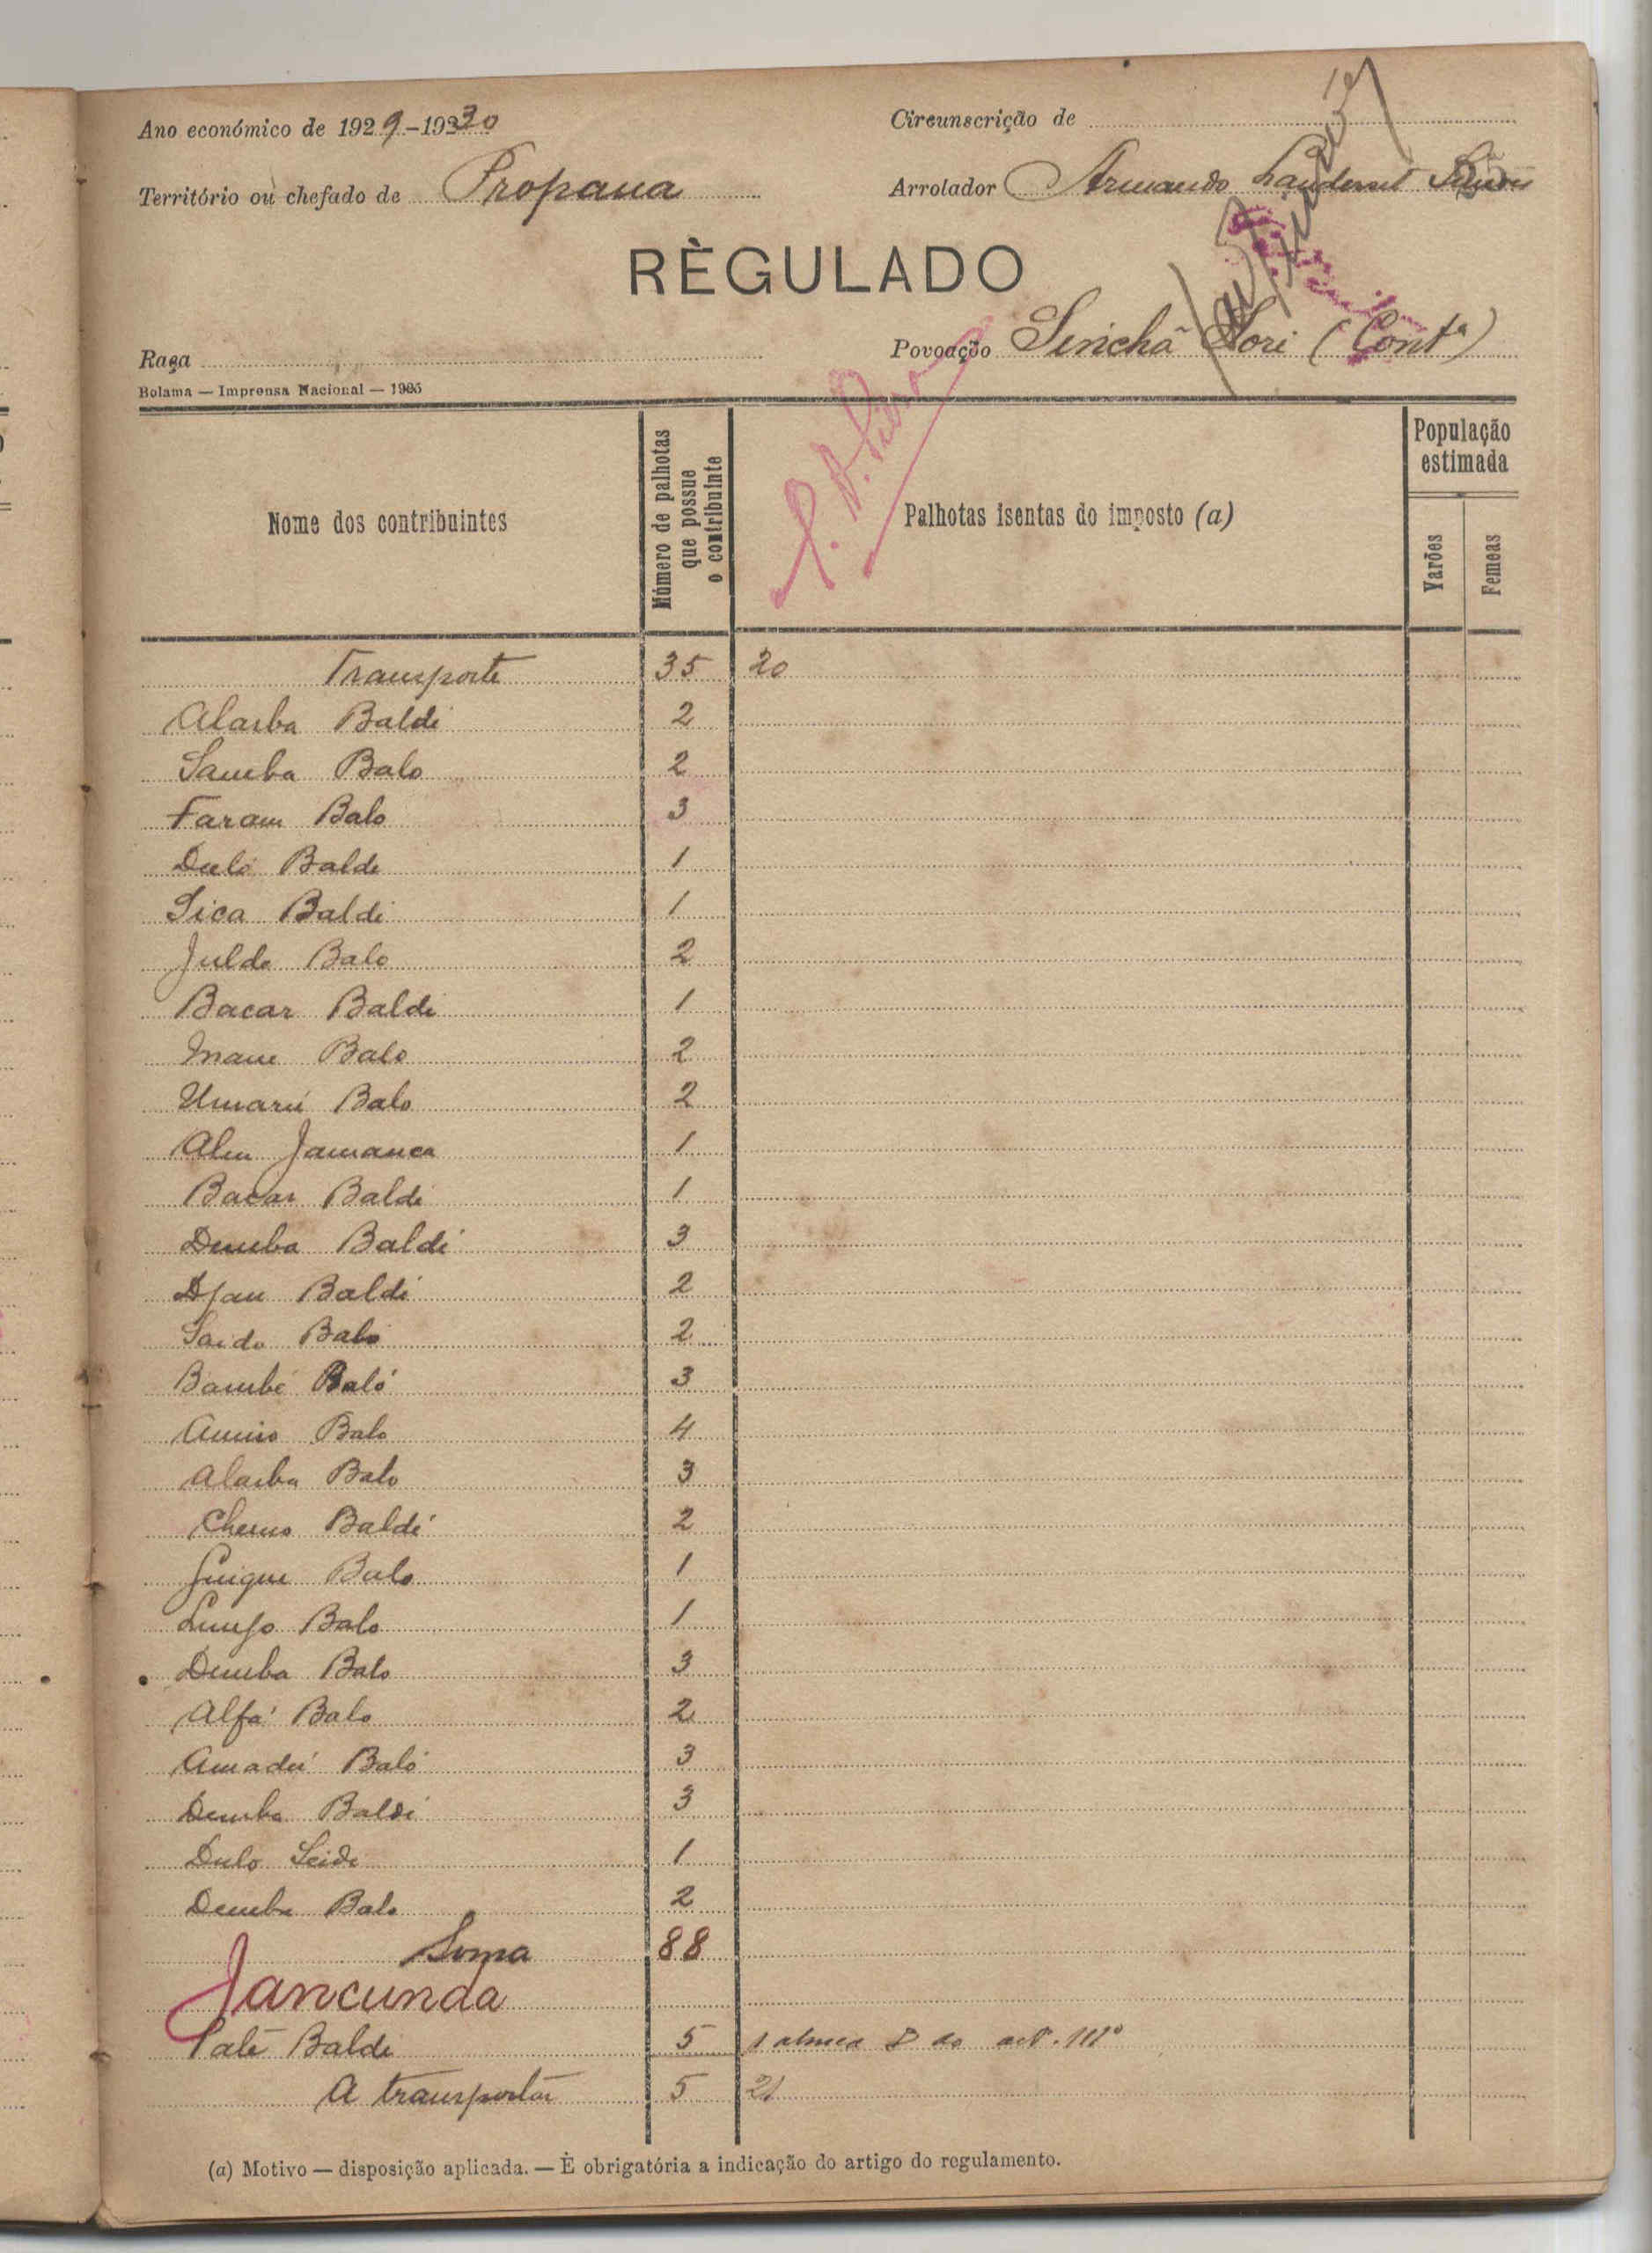 Ano económico de 1929-1930
Circunscrição de
Território ou chefado de Propana
Arrolador Armando Landerset Simões
RÈGULADO
Raça
Povoação Sinchã Sori (Contª)
Bolama — Imprensa Nacional — 1925
Nome dos contribuintes
Número de palhotas que possue o contribuinte
Palhotas isentas do imposto (a)
População estimada
Varões
Femeas
Transporte 35 20
Alarba Baldé 2
Samba Balo 2
Faram Balo 3
Duló Balde 1
Sica Baldé 1
Julde Balo 2
Bacar Baldé 1
Mane Balo 2
Umarú Balo 2
Jamanca 1
Bacar Baldé 1
Demba Baldé 3
Djau Baldé 2
Saido Balo 2
Bambé Baló 3
Balo 4
Alarba Balo 3
Cherno Baldé 2
Balo 1
Balo 1
Demba Balo 3
Alfá Balo 2
Amadú Baló 3
Demba Baldé 3
Dulo Seidi 1
Demba Balo 2
Soma 88
Jancunda
Paté Balde 5 1 do art. 111º
A transportar 5 21
(a) Motivo — disposição aplicada. — È obrigatória a indicação do artigo do regulamento.